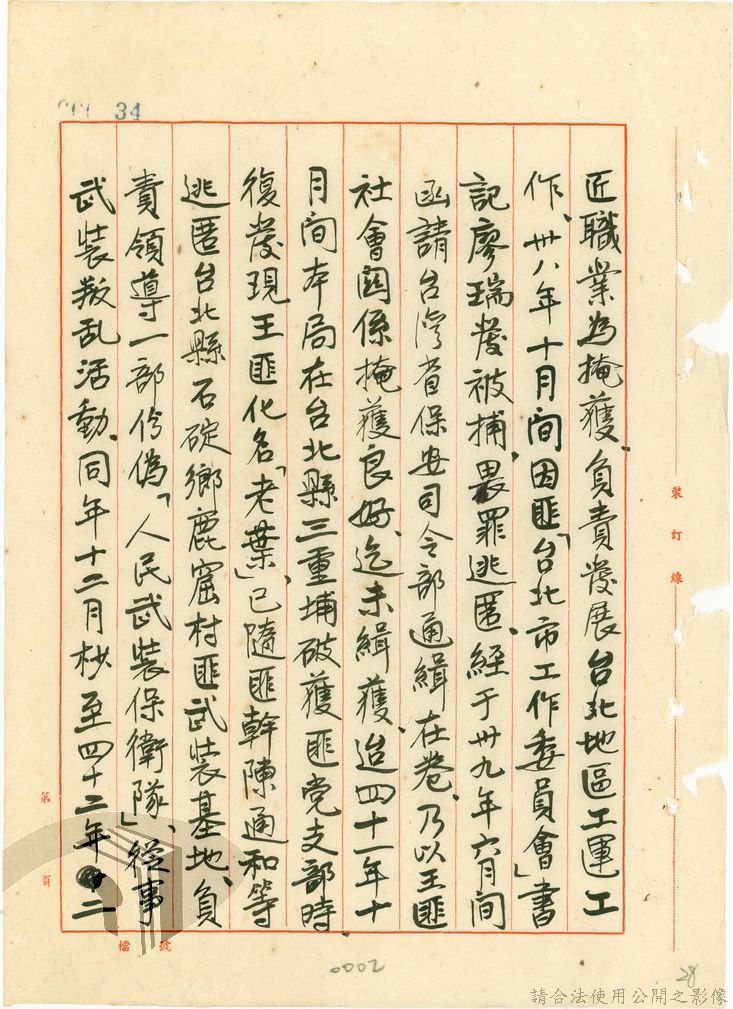 34
匠職業為掩獲、負責發展台北地區工運工
作、卅八年十月間因匪「台北市工作委員會」書
記廖瑞發被捕、畏罪逃匿、經于卅九年六月間
函請台灣省保安司令部通緝在卷、乃以王匪
社會關係掩獲良好、迄未緝獲、迨四十一年十
月間本局在台北縣三重埔破獲匪党支部時
復發現王匪化名「老葉」、已隨匪幹陳通和等
逃匿台北縣石碇鄉鹿窟村匪武装基地、負
責領導一部份偽「人民武裝保衛隊」、從事
武裝叛乱活動、同年十二月杪至四十二年二
裝訂線
第頁
檔號
0002
28
請合法使用公開之影像